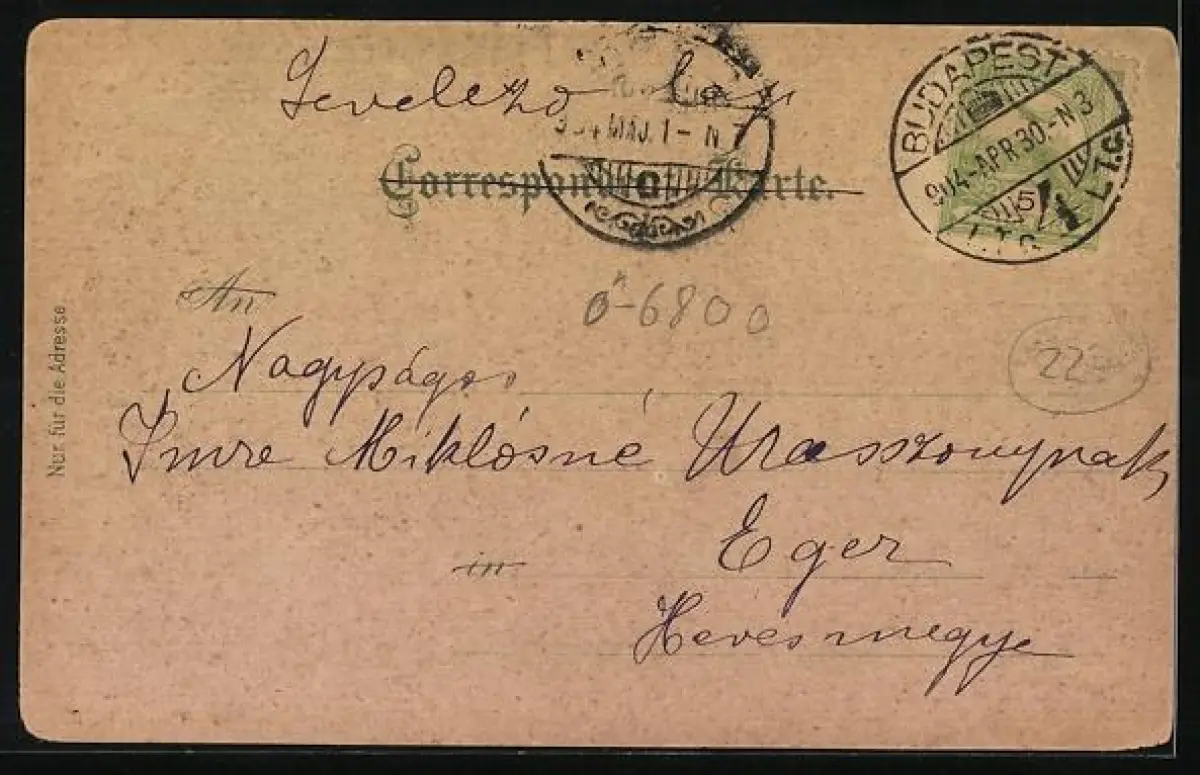 Levelező lap
Correspondenz-Karte.
BUDAPEST
904-APR 30.-N3
5
904 MÁJ. 1-N 7
An
ő-6800
22
Nagyságos
Imre Miklósné Uraszonynak
in
Eger
Hevesmegye
Nur für die Adresse